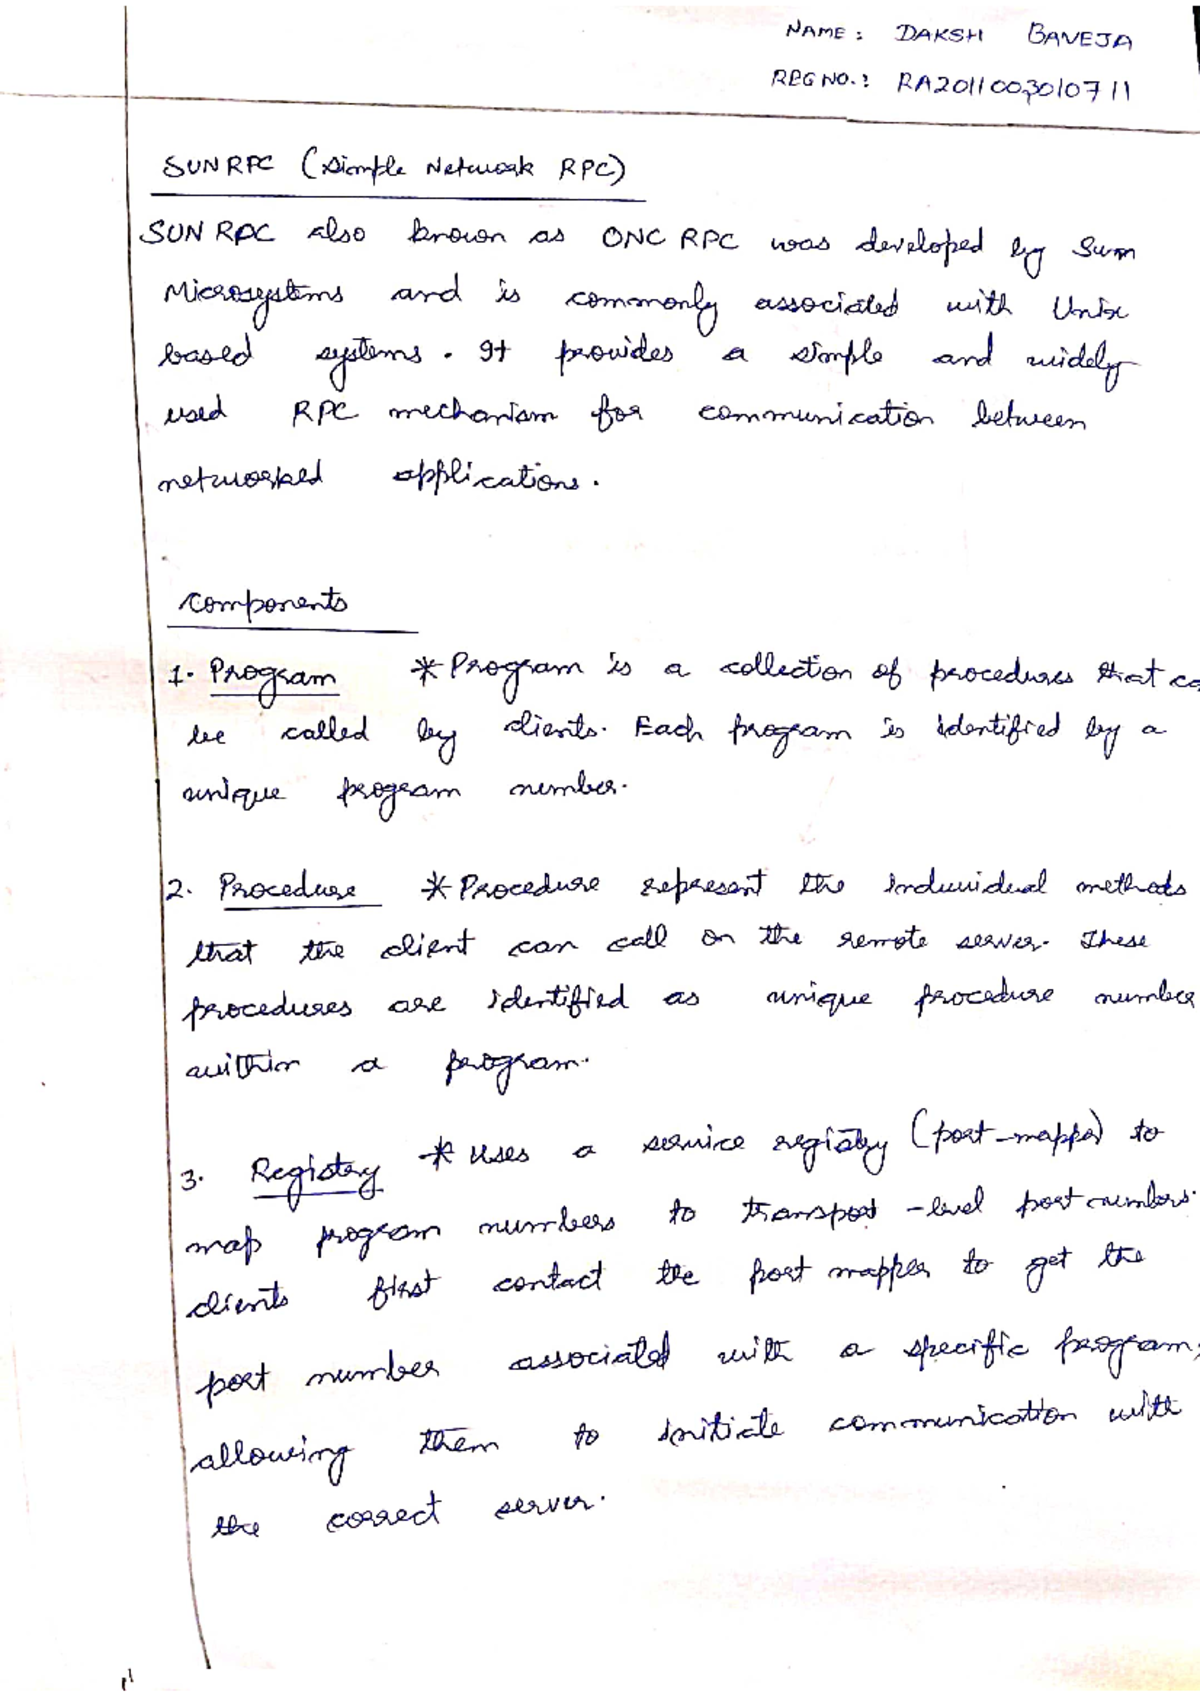 NAME: DAKSH BANEJA
REG NO.: RA2011003010711
SUNRPC (Simple Network RPC)
SUN RPC also known as ONC RPC was developed by Sum
Microsystems and is commonly associated with Unix
based systems. It provides a simple and widely
used RPC mechanism for communication between
networked applications.
Components
1. Program * Program is a collection of procedures that ca
be called by clients. Each program is identified by a
unique program number.
2. Procedure * Procedure represent the induvidual methods
that the client can call on the remote server. These
procedures are identified as unique procedure number
within a program.
3. Registry * Uses a service registry (port-mapper) to
map program numbers to transport-level port numbers.
clients first contact the port mapper to get the
port number associated with a specific program,
allowing them to initiate communication with
the correct server.